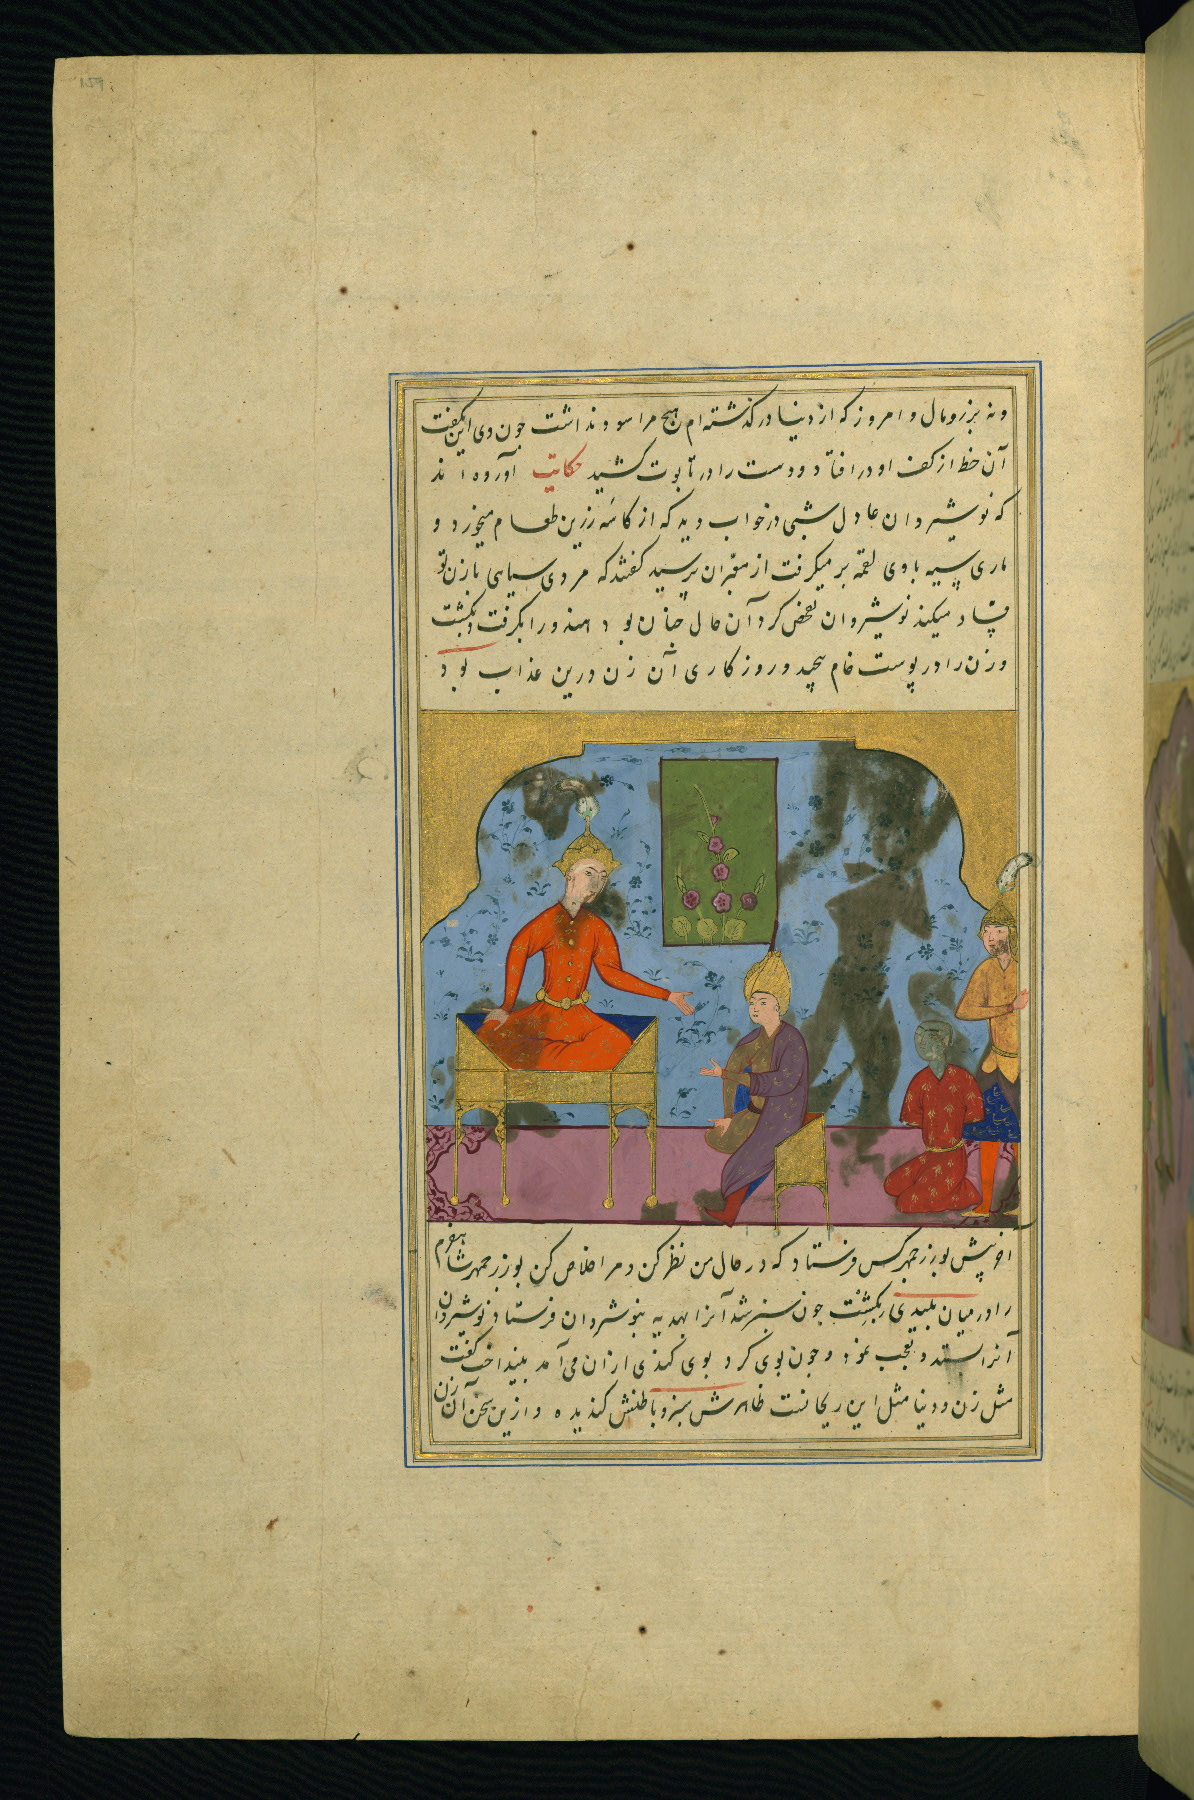 ونه بزر ومال و امروز که از دنیا در گذشته‌ام هیچ مرا سود نداشت چون وی این گفت
آن خط از کف او در افتاد و دست را در تابوت کشید حکایت آورده اند
که نوشیروان عادل شبی در خواب دید که از کاسه زرین طعام میخورد و
ماری سیه با وی لقمه بر میگرفت از معبران پرسید گفتند که مردی سیاهی با زن تو
فساد میکند نوشیروان تفحص کرد آن حال چنان بود هندو را بگرفت و بکشت
و زن را در پوست خام پیچید و روزگاری آن زن درین عذاب بود
آخر پیش بوزرجمهر کس فرستاد که در حال من نظر کن و مرا خلاص کن بوزرجمهر شاهفرم
را در میان پلیدی بکشت چون سبز شد آنرا بهدیه بنوشروان فرستاد نوشیروان
آنرا بستد و تعجب نمود و چون بوی کرد بوی گندی از آن می‌آمد بینداخت گفت
مثل زن و دنیا مثل این ریحانست ظاهرش سبز و باطنش گندیده و ازین سخن آن زن